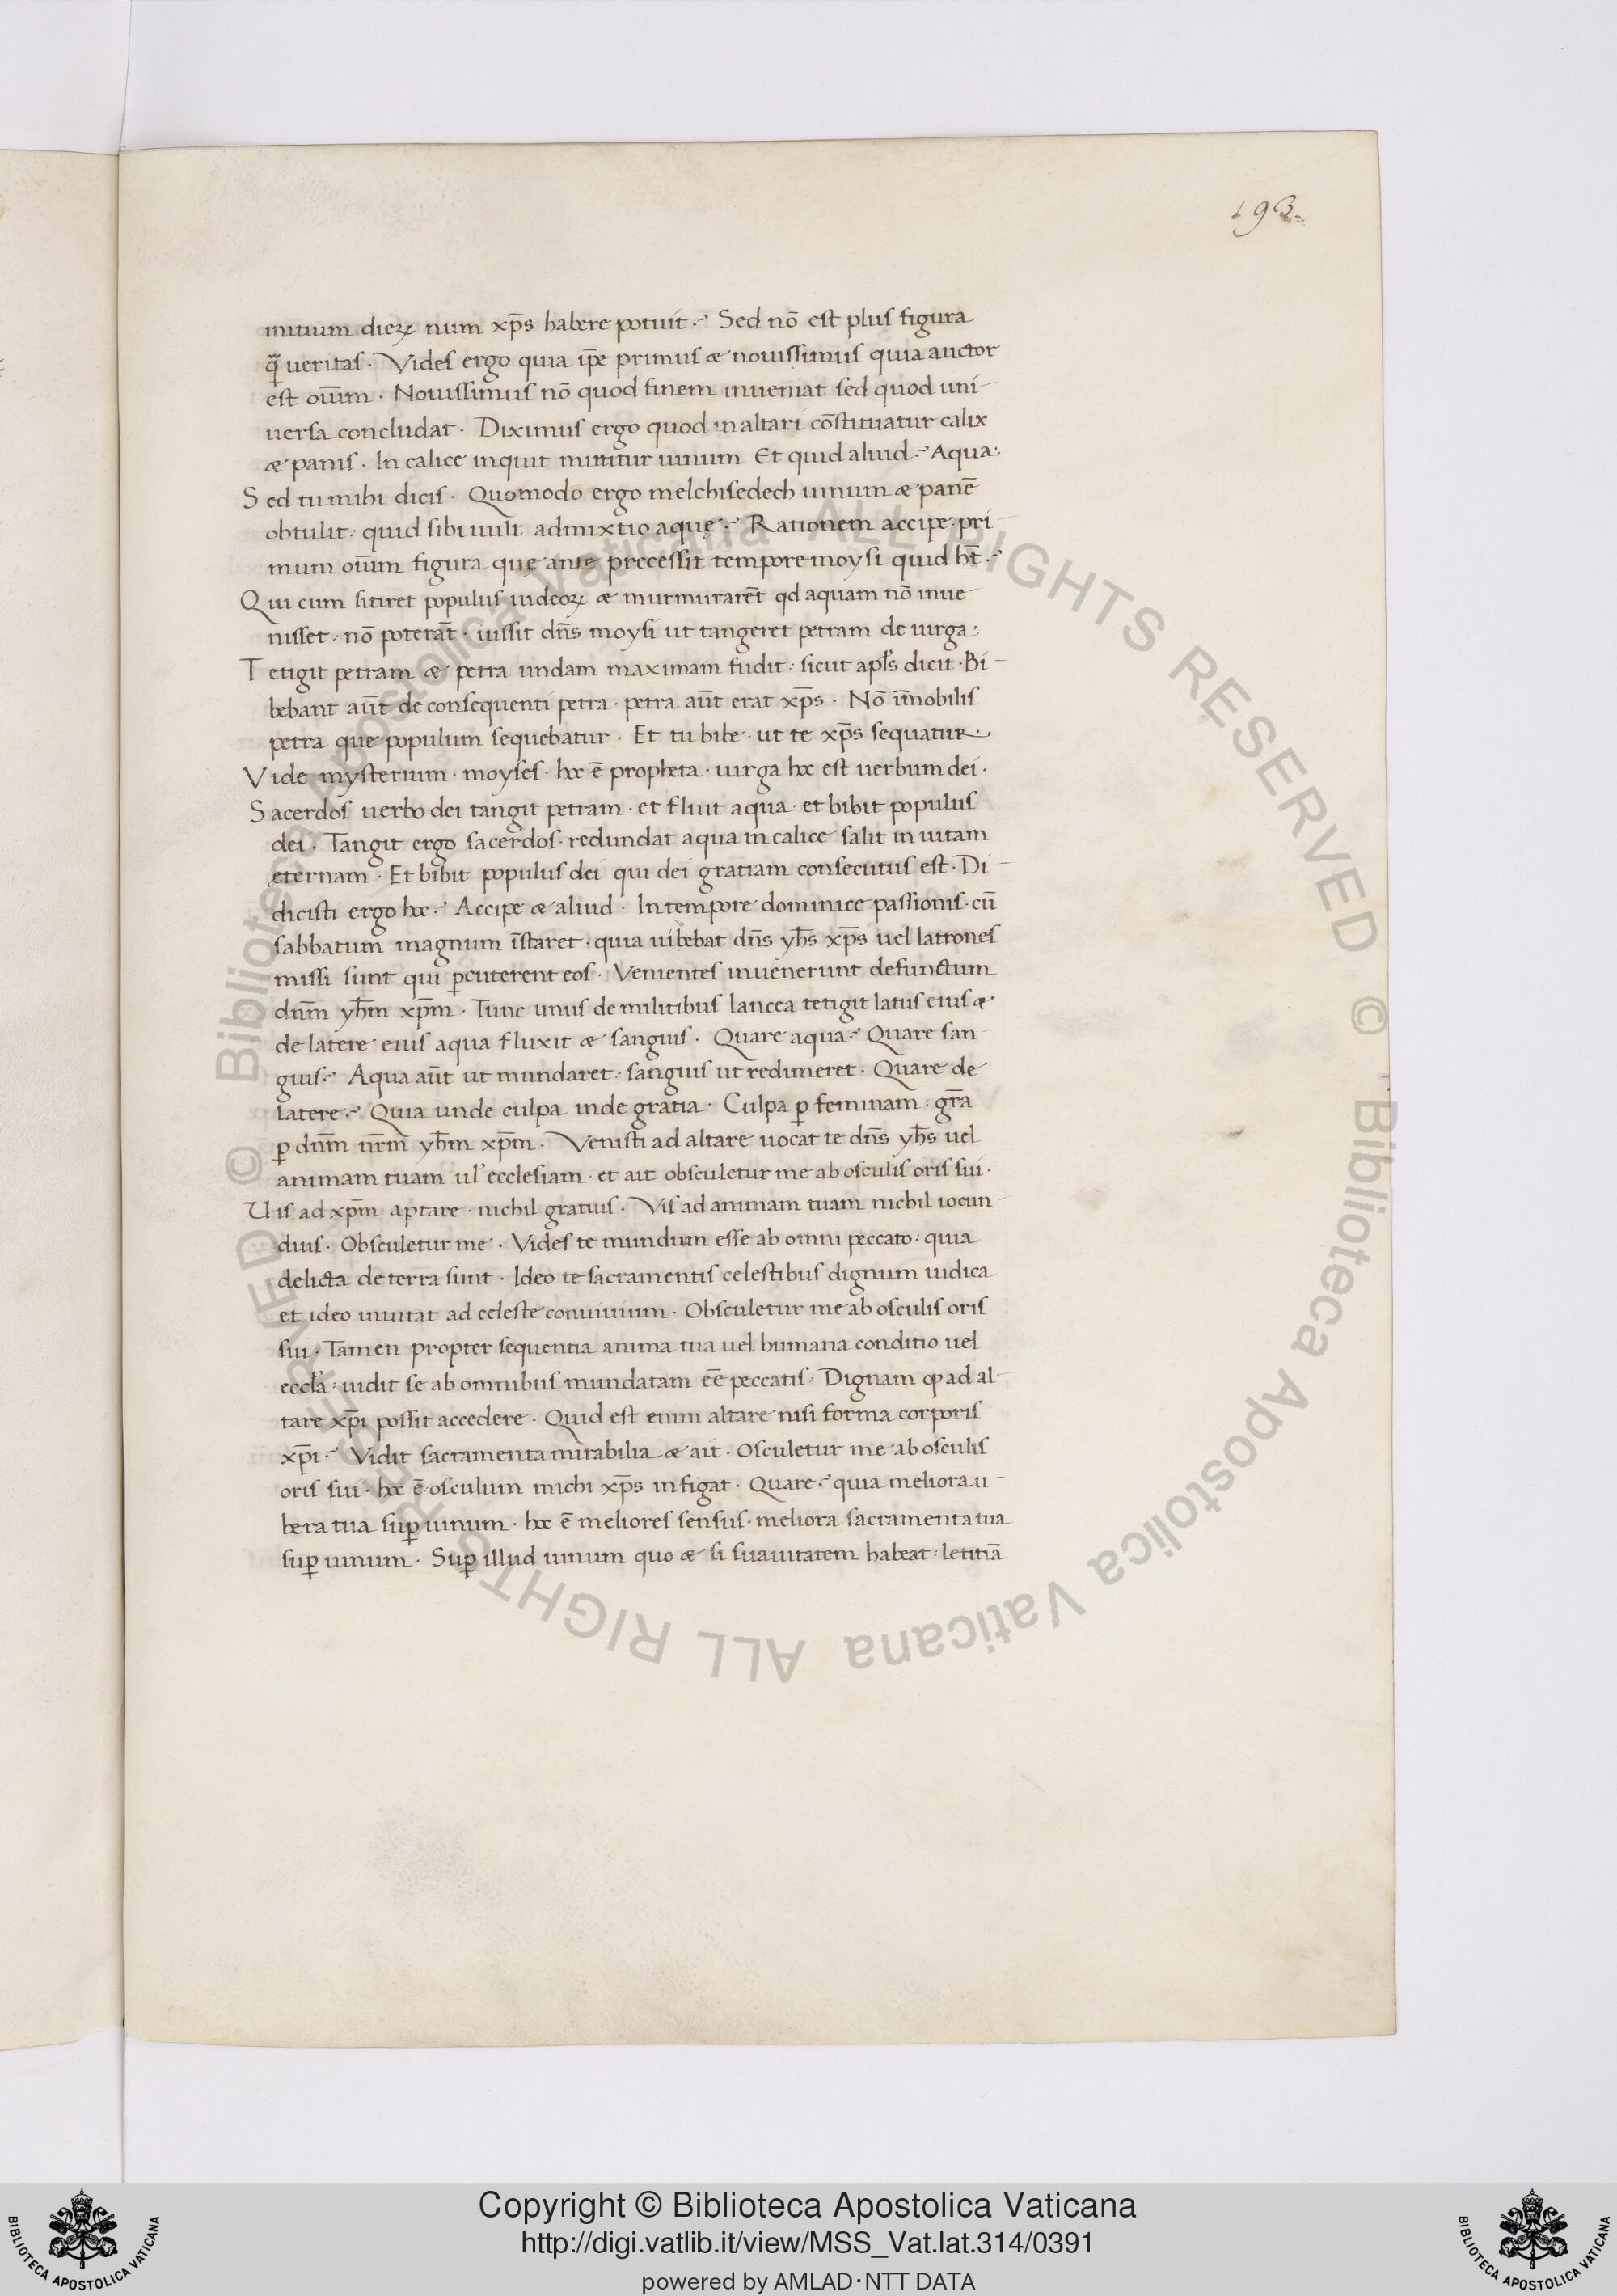 193
initium dieꝝ num xp̅s habere potuit. Sed nō est plus figura
q̃ ueritas. Vides ergo quia ip̅e primus & nouissimus quia auctor
est oium̅. Nouissimus nō quod finem inueniat sed quod uni-
uersa concludat. Diximus ergo quod in altari cōstituatur calix
& panis. In calice inquit mittitur uinum Et quid aliud. Aqua:
Sed tu mihi dicis. Quomodo ergo melchisedech uinum & panē
obtulit: quid sibi uult admixtio aquę. Rationem accipe. pri-
mum oiu̅m figura que ante precessit tempore moysi quid ht̅.
Qui cum sitiret populus iudeoꝝ & murmurare̅t qd aquam nō inue-
nisset. nō potera̅t. iussit dn̅s moysi ut tangeret petram de uirga:
Tetigit petram & petra undam maximam fudit: sicut apl's dicit. Bi-
bebant au̅t de consequenti petra. petra au̅t erat xp̅s. Nō im̅obilis
petra que populum sequebatur. Et tu bibe. ut te xp̅s sequatur.
Vide mysterium. moyses. hoc ē propheta. uirga hoc est uerbum dei.
Sacerdos uerbo dei tangit petram. et fluit aqua. et bibit populus
dei. Tangit ergo sacerdos. redundat aqua in calice salit in uitam
ęternam. Et bibit populus dei qui dei gratiam consecutus est. Di-
dicisti ergo hoc. Accipe & aliud. In tempore dominice passionis. cu̅
sabbatum magnum i̅staret. quia uibebat dn̅s yh̅s xp̅s uel latrones
missi sunt qui ꝑcuterent eos. Venientes inuenerunt defunctum
dn̅m yh̅m xp̅m. Tunc unus de militibus lancea tetigit latus eius &
de latere eius aqua fluxit & sanguis. Quare aqua. Quare san
guis. Aqua au̅t ut mundaret: sanguis ut redimeret. Quare de
latere. Quia unde culpa inde gratia. Culpa ꝑ feminam: gr̅a
ꝑ dn̅m nr̅m yh̅m xp̅m. Venisti ad altare uocat te dn̅s yh̅s uel
animam tuam ul' ecclesiam. et ait obsculetur me ab osculis oris sui.
Uis ad xp̅m aptare. nichil gratius. Vis ad animam tuam nichil iocun
dius. Obsculetur me. Vides te mundum esse ab omni peccato: quia
delicta deterra sunt. Ideo te sacramentis celestibus dignum iudica
et ideo inuitat ad celeste conuiuium. Obsculetur me ab osculis oris
sui. Tamen propter sequentia anima tua uel humana conditio uel
eccl'a: uidit se ab omnibus mundatam ee̅ peccatis. Dignam ꝙ ad al-
tare xp̅i possit accedere. Quid est enim altare nisi forma corporis
xp̅i. Vidit sacramenta mirabilia & ait. Osculetur me ab osculis
oris sui. hoc ē osculum michi xp̅s infigat. Quare. quia meliora u-
bera tua suꝑ uinum. hoc ē meliores sensus. meliora sacramenta tua
suꝑ uinum. Suꝑ illud uinum quo & si suauitatem habeat: letitiā
© Biblioteca Apostolica Vaticana ALL RIGHTS RESERVED © Biblioteca Apostolica Vaticana ALL RIGHTS RESERVED
Copyright © Biblioteca Apostolica Vaticana
http://digi.vatlib.it/view/MSS_Vat.lat.314/0391
powered by AMLAD·NTT DATA
BIBLIOTECA APOSTOLICA VATICANA
BIBLIOTECA APOSTOLICA VATICANA